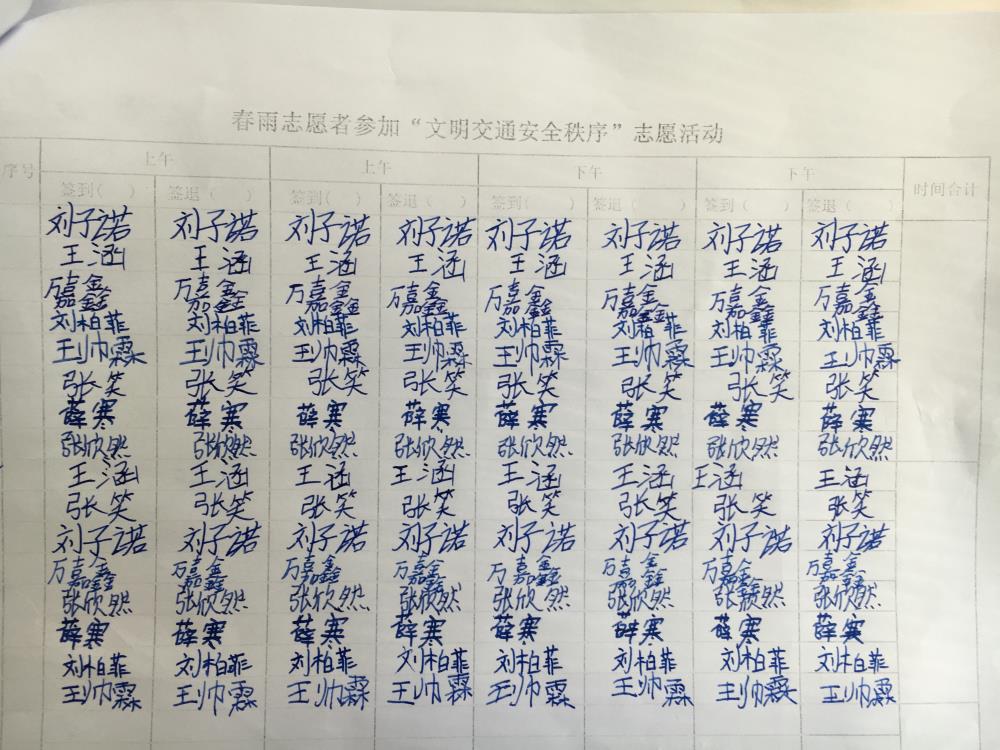 春雨志愿者参加“文明交通安全秩序”志愿活动
序号 上午 上午 下午 下午 时间合计
签到( ) 签退( ) 签到( ) 签退( ) 签到( ) 签退( ) 签到( ) 签退( )
刘子诺 刘子诺 刘子诺 刘子诺 刘子诺 刘子诺 刘子诺 刘子诺
王涵 王涵 王涵 王涵 王涵 王涵 王涵 王涵
万嘉鑫 万嘉鑫 万嘉鑫 万嘉鑫 万嘉鑫 万嘉鑫 万嘉鑫 万嘉鑫
刘柏菲 刘柏菲 刘柏菲 刘柏菲 刘柏菲 刘柏菲 刘柏菲 刘柏菲
王帅霖 王帅霖 王帅霖 王帅霖 王帅霖 王帅霖 王帅霖 王帅霖
张笑 张笑 张笑 张笑 张笑 张笑 张笑 张笑
薛寒 薛寒 薛寒 薛寒 薛寒 薛寒 薛寒 薛寒
张欣然 张欣然 张欣然 张欣然 张欣然 张欣然 张欣然 张欣然
王涵 王涵 王涵 王涵 王涵 王涵 王涵 王涵
张笑 张笑 张笑 张笑 张笑 张笑 张笑 张笑
刘子诺 刘子诺 刘子诺 刘子诺 刘子诺 刘子诺 刘子诺 刘子诺
万嘉鑫 万嘉鑫 万嘉鑫 万嘉鑫 万嘉鑫 万嘉鑫 万嘉鑫 万嘉鑫
张欣然 张欣然 张欣然 张欣然 张欣然 张欣然 张欣然 张欣然
薛寒 薛寒 薛寒 薛寒 薛寒 薛寒 薛寒 薛寒
刘柏菲 刘柏菲 刘柏菲 刘柏菲 刘柏菲 刘柏菲 刘柏菲 刘柏菲
王帅霖 王帅霖 王帅霖 王帅霖 王帅霖 王帅霖 王帅霖 王帅霖